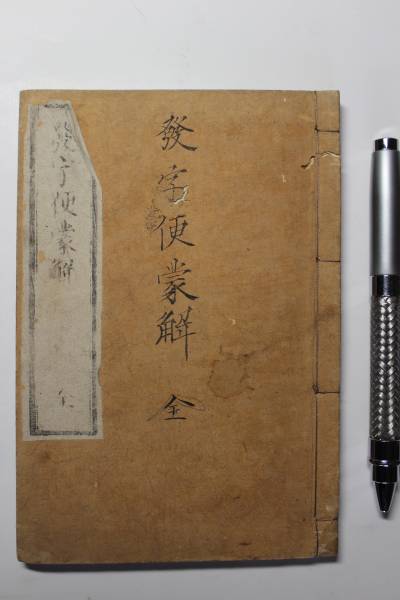 發字便蒙解 全
發字便蒙解 全